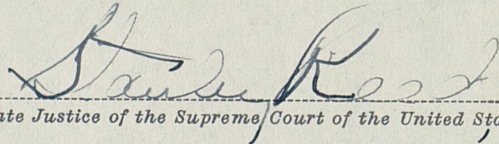 Stanley Reed
ate Justice of the Supreme Court of the United Sta